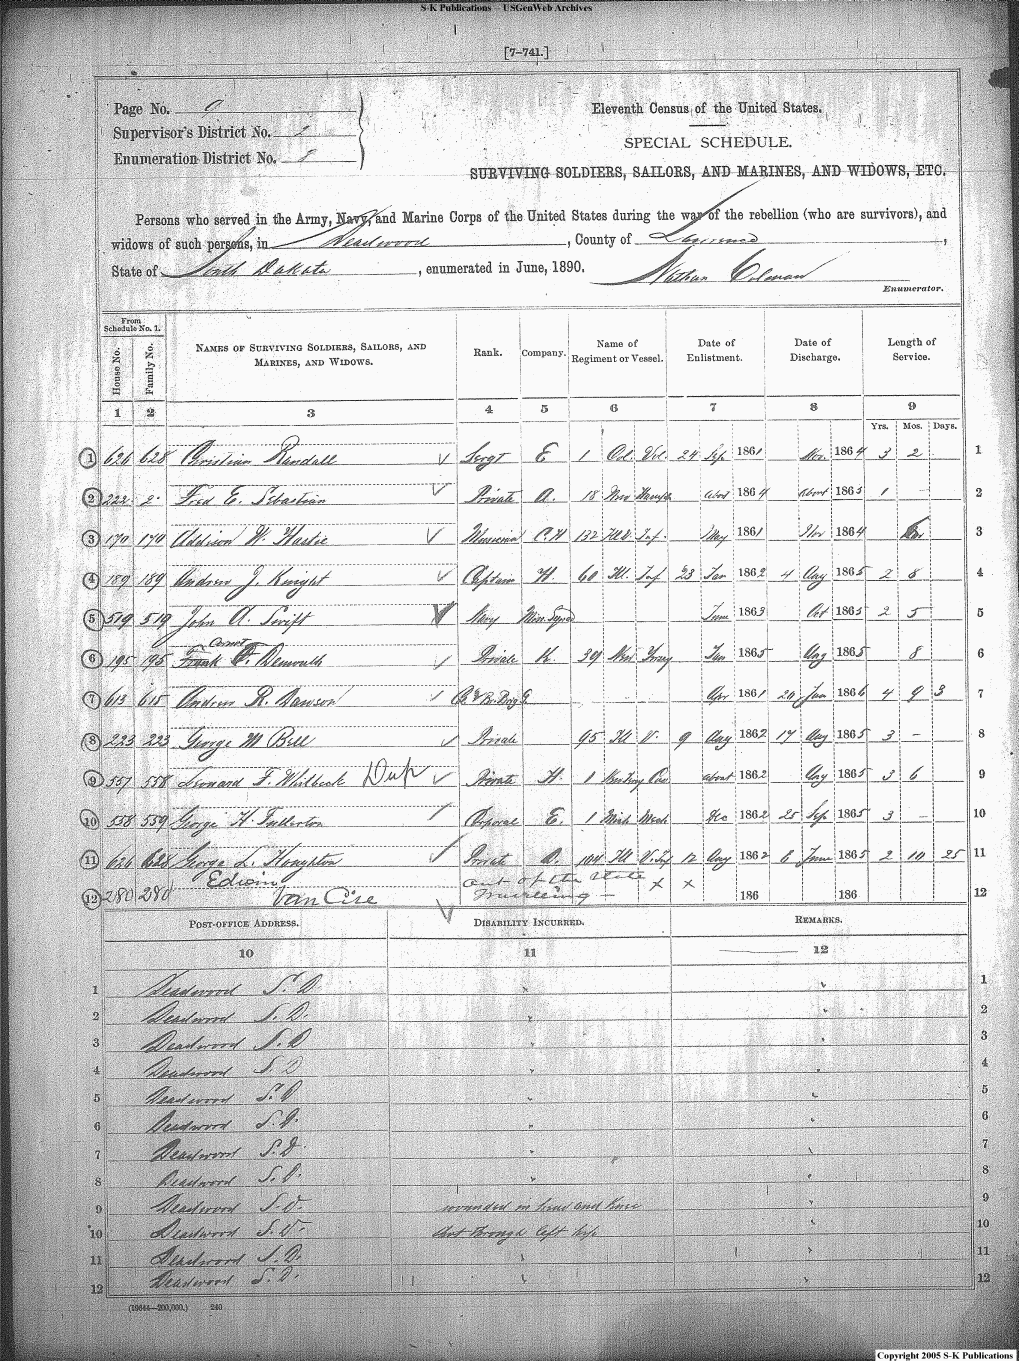 S-K Publications - USGenWeb Archives
[7-741.]
Page No. 9
Supervisor's District No. 2
Enumeration District No. 8
Eleventh Census of the United States.
SPECIAL SCHEDULE.
SURVIVING SOLDIERS, SAILORS, AND MARINES, AND WIDOWS, ETC.
Persons who served in the Army, Navy, and Marine Corps of the United States during the war of the rebellion (who are survivors), and
widows of such persons, in Deadwood, County of Lawrence,
State of South Dakota, enumerated in June, 1890. Nathan Colman
Enumerator.
From Schedule No. 1.
House No. Family No. NAMES OF SURVIVING SOLDIERS, SAILORS, AND MARINES, AND WIDOWS. Rank. Company. Name of Regiment or Vessel. Date of Enlistment. Date of Discharge. Length of Service.
1 2 3 4 5 6 7 8 9
Yrs. Mos. Days.
1 626 628 Christian Randall Sergt E 1 Col. Vol. 24 Sep 1861 Nov. 1864 3 2 1
2 222 2 Fred E. Sebastian Private A. 18 New Hamp about 1864 about 1865 1 2
3 170 170 Addison W. Hastie Musician 132 Ill. Inf. May 1861 Nov 1864 3
4 189 189 Andrew J. Knight Captain H. 60 Ill. Inf 23 Jan 1862 4 Aug 1865 2 8 4
5 519 519 John A. Swift Navy Miss. Sqnad June 1863 Oct 1865 2 5 5
6 195 195 Frank Private K. 39 New Jersey Jan 1865 Aug 1865 8 6
7 613 615 Andrew R. Dawson Apr 1861 20 Jan 1866 4 9 3 7
8 223 223 George M Bell Private 95 Ill V. 9 Aug 1862 17 Aug 1865 3 - 8
9 557 558 Leonard F. Whitbeck Dup Private H. 1 about 1862 Aug 1865 3 6 9
10 558 559 George H. Fullerton Corporal E. 1 Mich Mech Dec 1862 25 Sep 1865 3 - 10
11 626 628 George L. Houghton Private D. 104 Ill V. Inf 12 Aug 1862 6 June 1865 2 10 25 11
12 280 280 Edwin Van Cise out of the State travelling - x x 186 186 12
POST-OFFICE ADDRESS. DISABILITY INCURRED. REMARKS.
10 11 12
1 Deadwood S. D 1
2 Deadwood S. D. 2
3 Deadwood S. D 3
4 Deadwood S. D 4
5 Deadwood S. D 5
6 Deadwood S. D. 6
7 Deadwood S. D. 7
8 Deadwood S. D. 8
9 Deadwood S. D. wounded in head and knee 9
10 Deadwood S. D. shot through left hip 10
11 Deadwood S. D. 11
12 Deadwood S. D. 12
(19644—200,000.) 240
Copyright 2005 S-K Publications